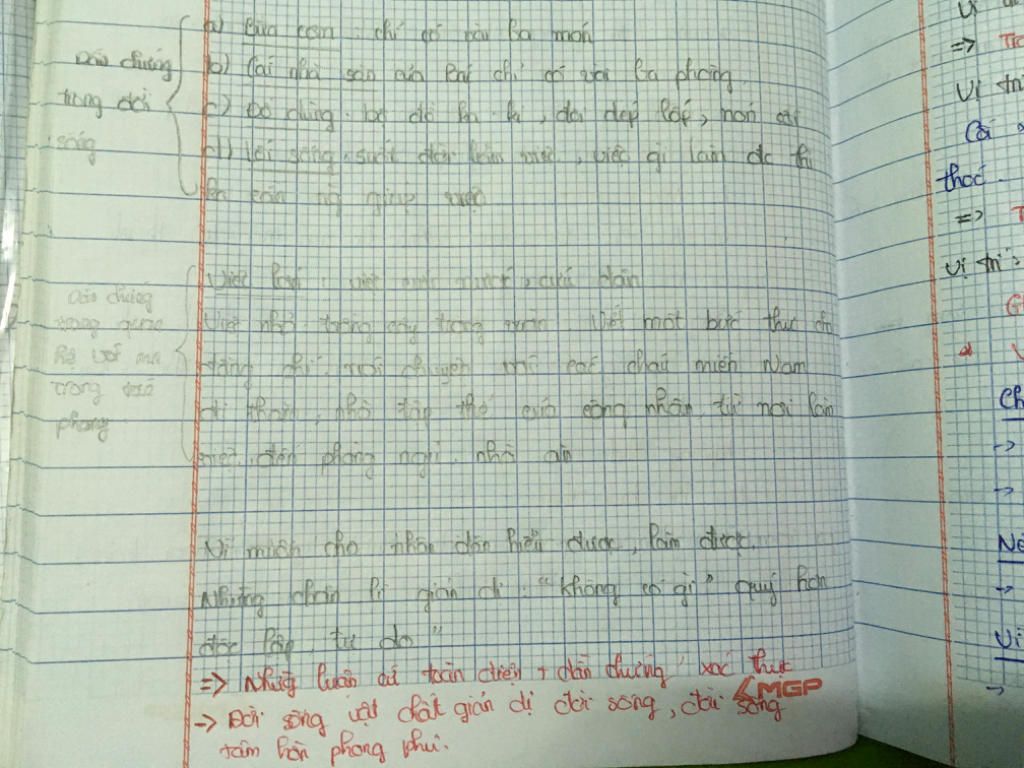 Dẫn chứng
trong đời
sống
a) Bữa cơm : chỉ có vài ba món
b) Cái nhà sàn của Bác chỉ có vài ba phòng
c) Đồ dùng. bộ đồ ka-ki, đôi dép lốp, nón
d) Lối sống. suốt đời làm việc, việc gì làm đc thì
giúp việc
Dẫn chứng
trong quan
hệ với mọi
trong tác
phong
Việc lớn : việc cứu nước, cứu dân
Việc nhỏ. trồng cây trong vườn. Viết một bức thư cho
đồng chí. nói chuyện các cháu miền Nam
đi thăm nhà tập thể của công nhân. từ nơi làm
việc. đến phòng ngủ. nhà ăn
Vì muốn cho nhân dân hiểu được, làm được.
Những chân lí giản dị. "không có gì" quý hơn
độc lập. tự do"
=> Những luận cứ toàn diện + dẫn chứng xác thực
-> Đời sống vật chất giản dị đời sống, đời sống
tâm hồn phong phú.
MGP
Vì
=>
Vị trí
Cối
thóc.
=> T
Vị trí:
G
V
Ch
->
->
Nê
->
Vi
->